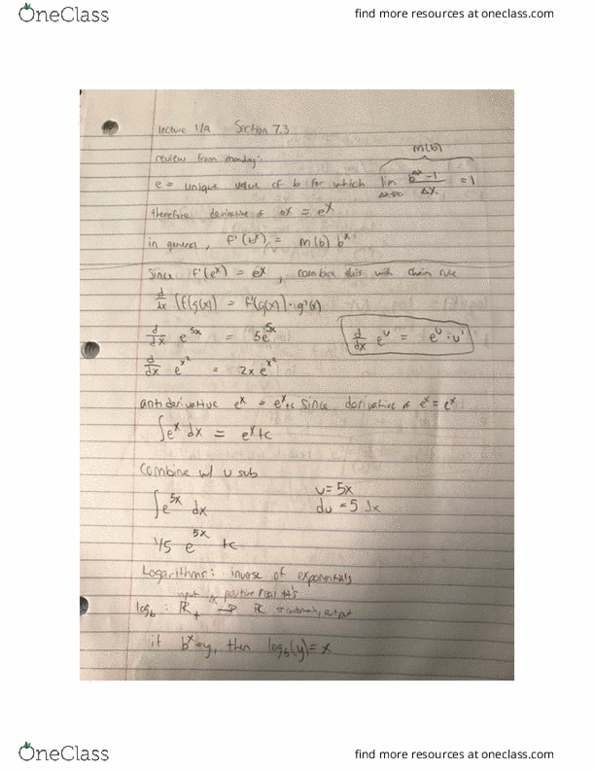 OneClass
find more resources at oneclass.com
lecture 1/9 Section 7.3
review from monday:
m(b)
e = unique value of b for which lim Δx→0 b^Δx -1 / Δx = 1
therefore derivative of e^x = e^x
in general, f'(b^x) = m(b) b^x
Since f'(e^x) = e^x, combine this with chain rule
d/dx (f(g(x)) = f'(g(x)) · g'(x)
d/dx e^5x = 5e^5x
d/dx e^u = e^u · u'
d/dx e^x² = 2x e^x²
antiderivative e^x = e^x+c since derivative of e^x = e^x
∫e^x dx = e^x+c
Combine w/ u sub
∫e^5x dx
u = 5x
du = 5 dx
1/5 e^5x +c
Logarithms: inverse of exponentials
input positive real #'s
log_b : ℝ_+ → ℝ codomain, output
if b^x=y, then log_b(y)=x
OneClass
find more resources at oneclass.com